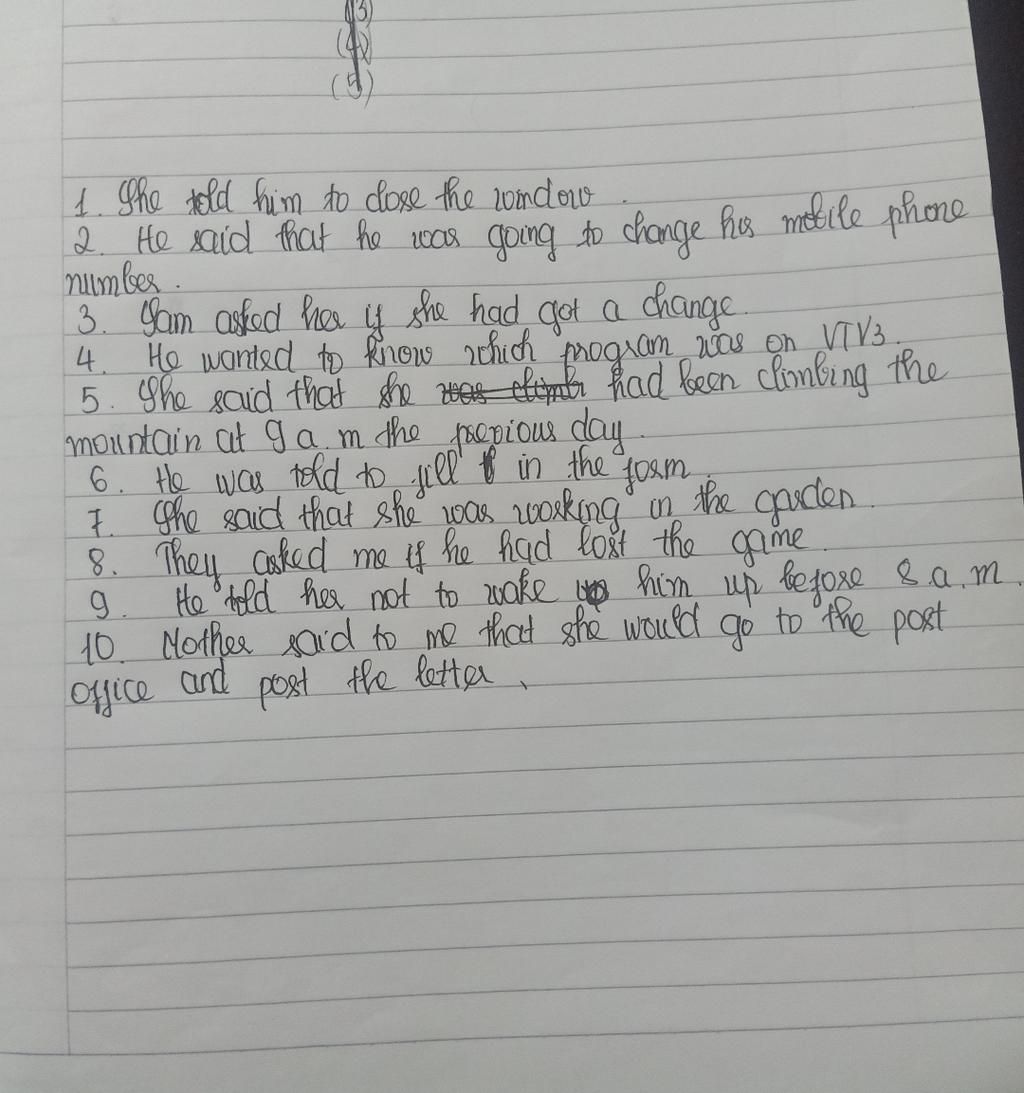 (3)
(4)
(5)
1. She told him to close the window.
2. He said that he was going to change his mobile phone
number.
3. Sam asked her if she had got a change.
4. He wanted to know which program was on VTV3.
5. She said that she was climb had been climbing the
mountain at 9 a.m the previous day.
6. He was told to fill in the form.
7. She said that she was working in the garden.
8. They asked me if he had lost the game.
9. He told her not to wake him up before 8 a.m.
10. Mother said to me that she would go to the post
office and post the letter.